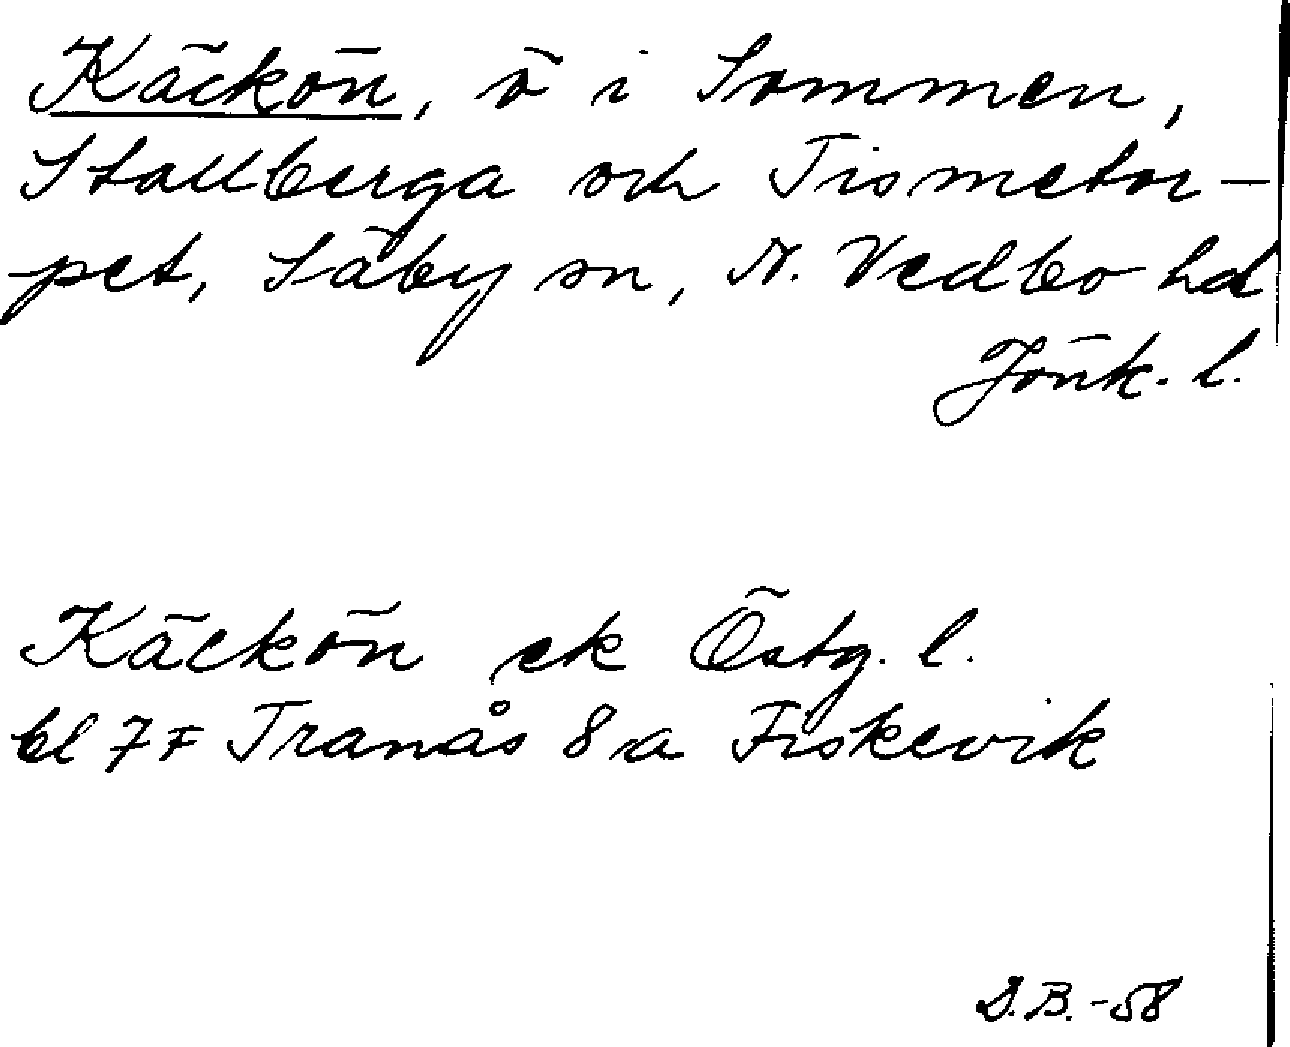 Käckön, ö i Sommen,
Stallberga och Tismetor-
pet, Säby sn, N. Vedbo hd
Jönk. l.
Käckön ek Östg. l.
bl 7F Tranås 8a Fiskevik
D.B. -58